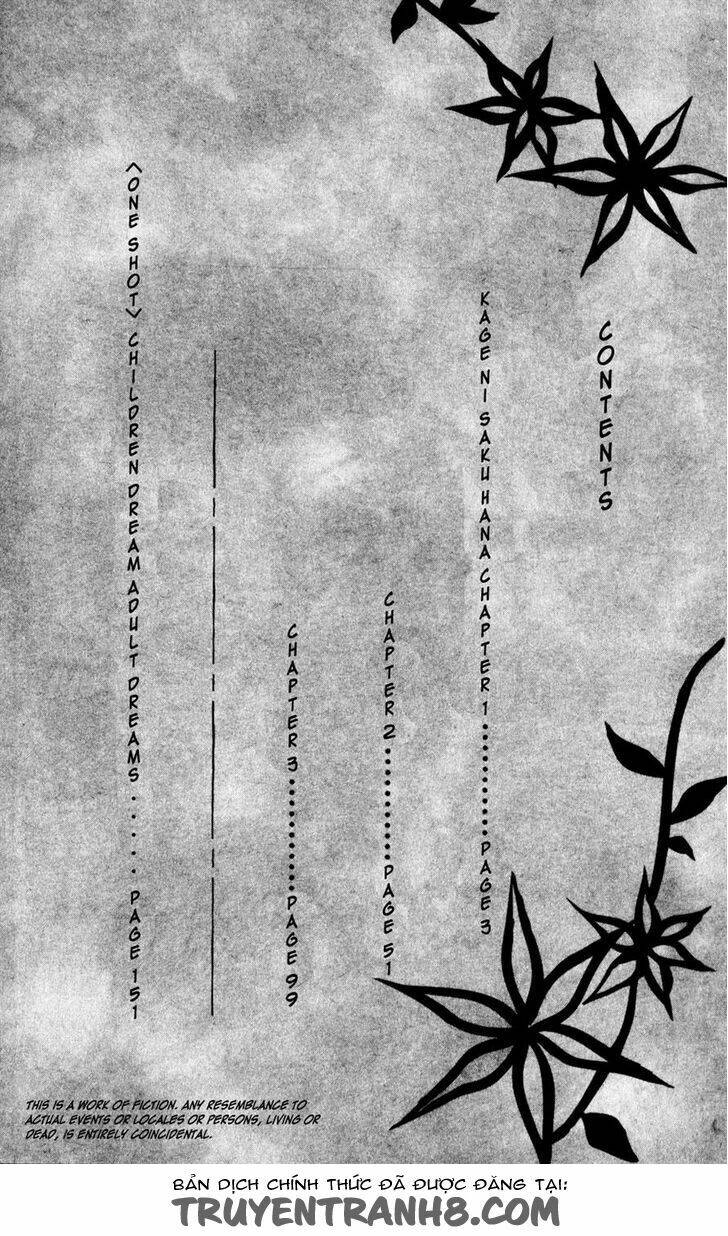 CONTENTS
KAGE NI SAKU HANA CHAPTER 1............PAGE 3
CHAPTER 2...........PAGE 51
CHAPTER 3...........PAGE 99
<ONE SHOT> CHILDREN DREAM ADULT DREAMS.....PAGE 151
THIS IS A WORK OF FICTION. ANY RESEMBLANCE TO
ACTUAL EVENTS OR LOCALES OR PERSONS, LIVING OR
DEAD, IS ENTIRELY COINCIDENTAL.
BẢN DỊCH CHÍNH THỨC ĐÃ ĐƯỢC ĐĂNG TẠI:
TRUYENTRANH8.COM